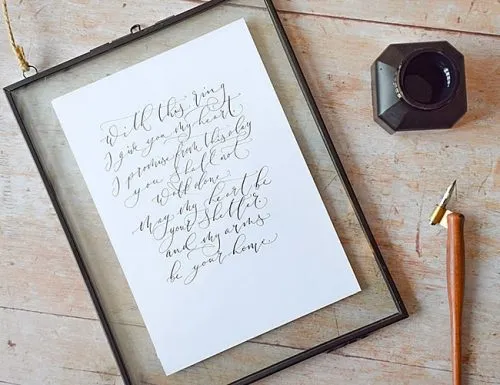 With this ring
I give you my heart
I promise from this day
you shall not
walk alone
May my heart be
your shelter
and my arms
be your home